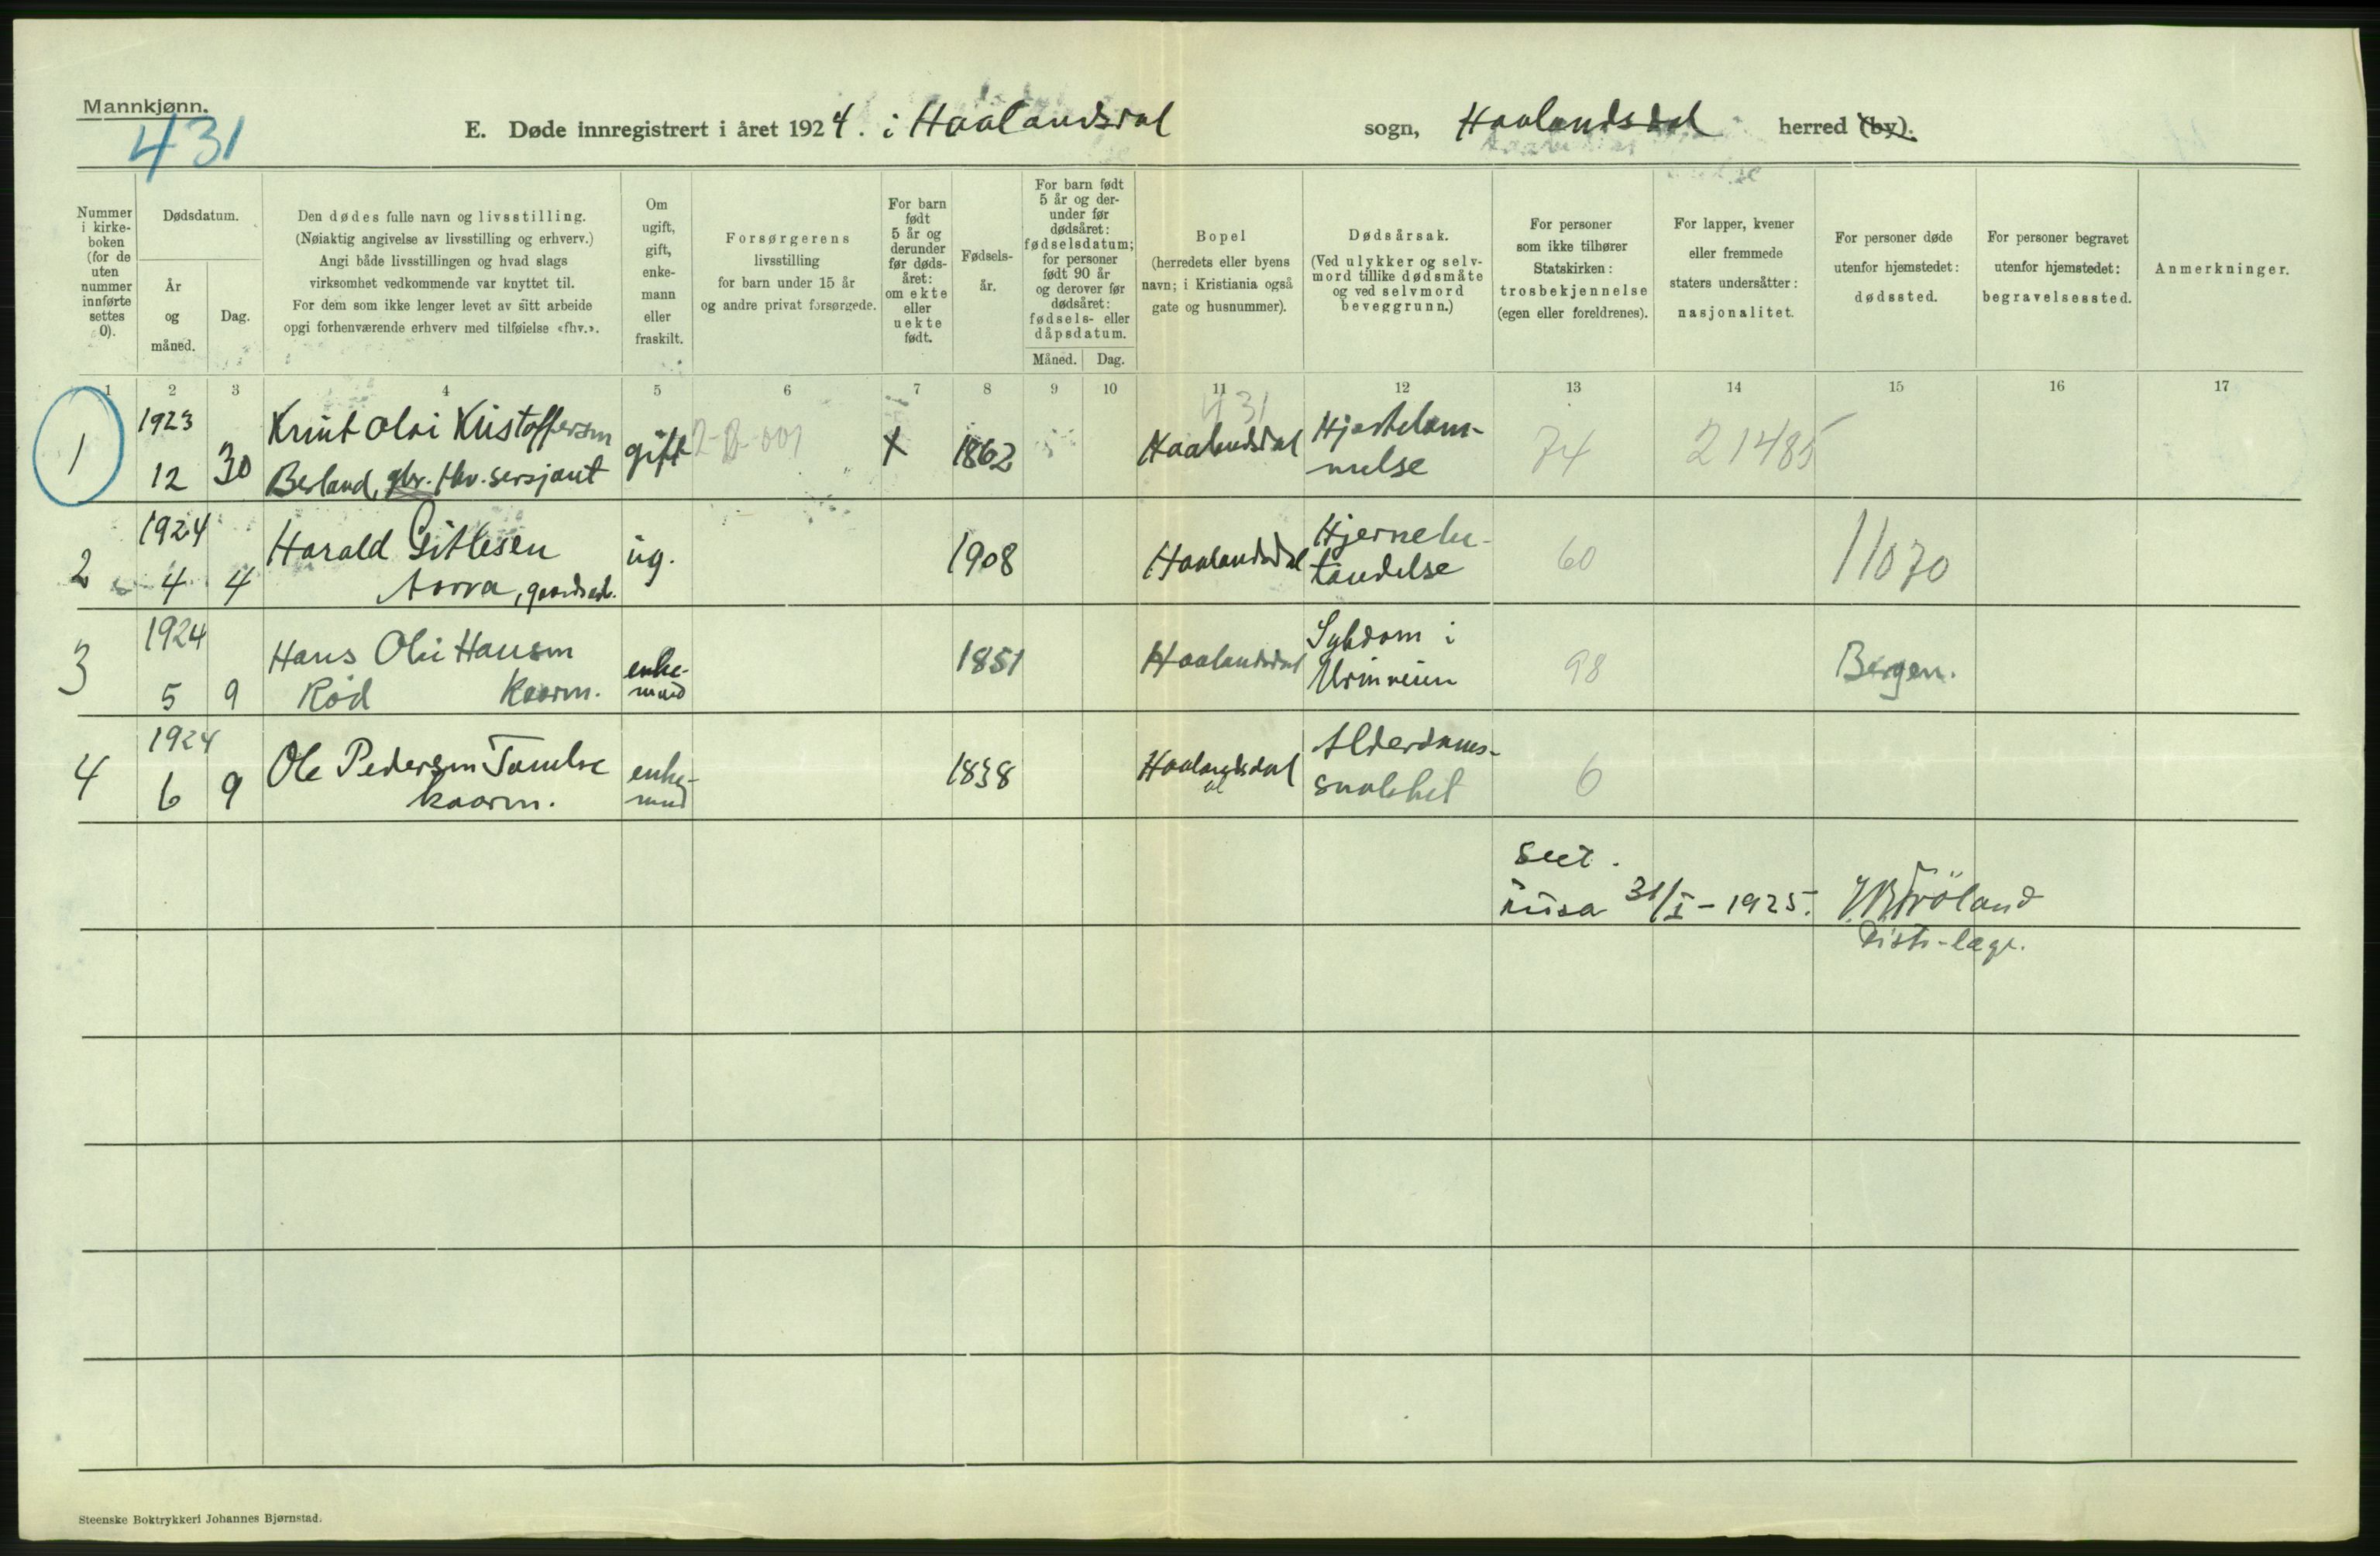 Mannkjønn.
431
E. Døde innregistrert i året 1924. i Haalandsdal sogn, Haalandsdal herred (by).
Nummer i kirke- boken (for de uten nummer innførte settes 0).
Dødsdatum.
År og måned.
Dag.
Den dødes fulle navn og livsstilling.
(Nøiaktig angivelse av livsstilling og erhverv.)
Angi både livsstillingen og hvad slags
virksomhet vedkommende var knyttet til.
For dem som ikke lenger levet av sitt arbeide
opgi forhenværende erhverv med tilføielse «fhv.».
Om ugift, gift, enke- mann eller fraskilt.
Forsørgerens
livsstilling
for barn under 15 år
og andre privat forsørgede.
For barn født 5 år og derunder før døds- året: om ekte eller uekte født.
Fødsels- år.
For barn født 5 år og der- under før dødsåret: fødselsdatum; for personer født 90 år og derover før dødsåret: fødsels- eller dåpsdatum.
Måned. Dag.
Bopel
(herredets eller byens
navn; i Kristiania også
gate og husnummer).
Dødsårsak.
(Ved ulykker og selv-
mord tillike dødsmåte
og ved selvmord
beveggrunn.)
For personer
som ikke tilhører
Statskirken:
trosbekjennelse
(egen eller foreldrenes).
For lapper, kvener
eller fremmede
staters undersåtter:
nasjonalitet.
For personer døde
utenfor hjemstedet:
dødssted.
For personer begravet
utenfor hjemstedet:
begravelsessted.
Anmerkninger.
1 2 3 4 5 6 7 8 9 10 11 12 13 14 15 16 17
431
1 1923 Knut Olai Kristoffersen gift X 1862 Haalandsdal Hjertelam- 74 21485
12 30 Berland, gbr. fhv. sersjant nelse
2 1924 Harald Gitlesen ug. 1908 Haalandsdal Hjernebe- 60 11070
4 4 gaardsarb. tændelse
3 1924 Hans Olai Hansen enke- 1851 Haalandsdal Sykdom i 98 Bergen.
5 9 Rød kaarm. mand Urinveien
4 1924 Ole Pedersen enke- 1838 Haalandsdal Alderdoms- 6
6 9 kaarm. mand svakhet
Seet.
31/I - 1925.
Distr-læge.
Steenske Boktrykkeri Johannes Bjørnstad.